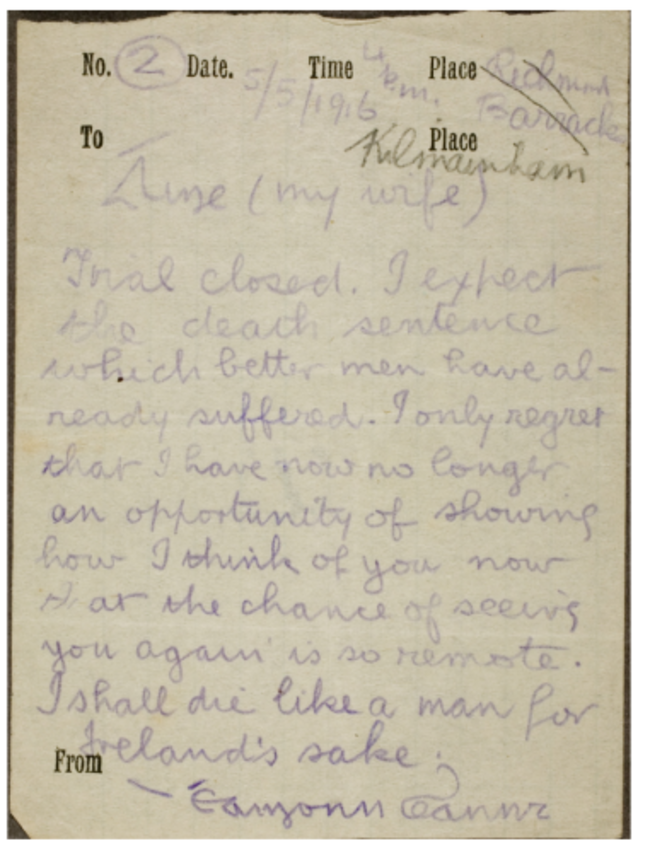 No. 2 Date. 5/5/1916 Time 4 p.m. Place Richmond
Barracks
To Place
Kilmainham
Áine (my wife)
Trial closed. I expect
the death sentence
which better men have al-
ready suffered. I only regret
that I have now no longer
an opportunity of showing
how I think of you now
that the chance of seeing
you again is so remote.
I shall die like a man for
Ireland's sake.
From
Éamonn Ceannt